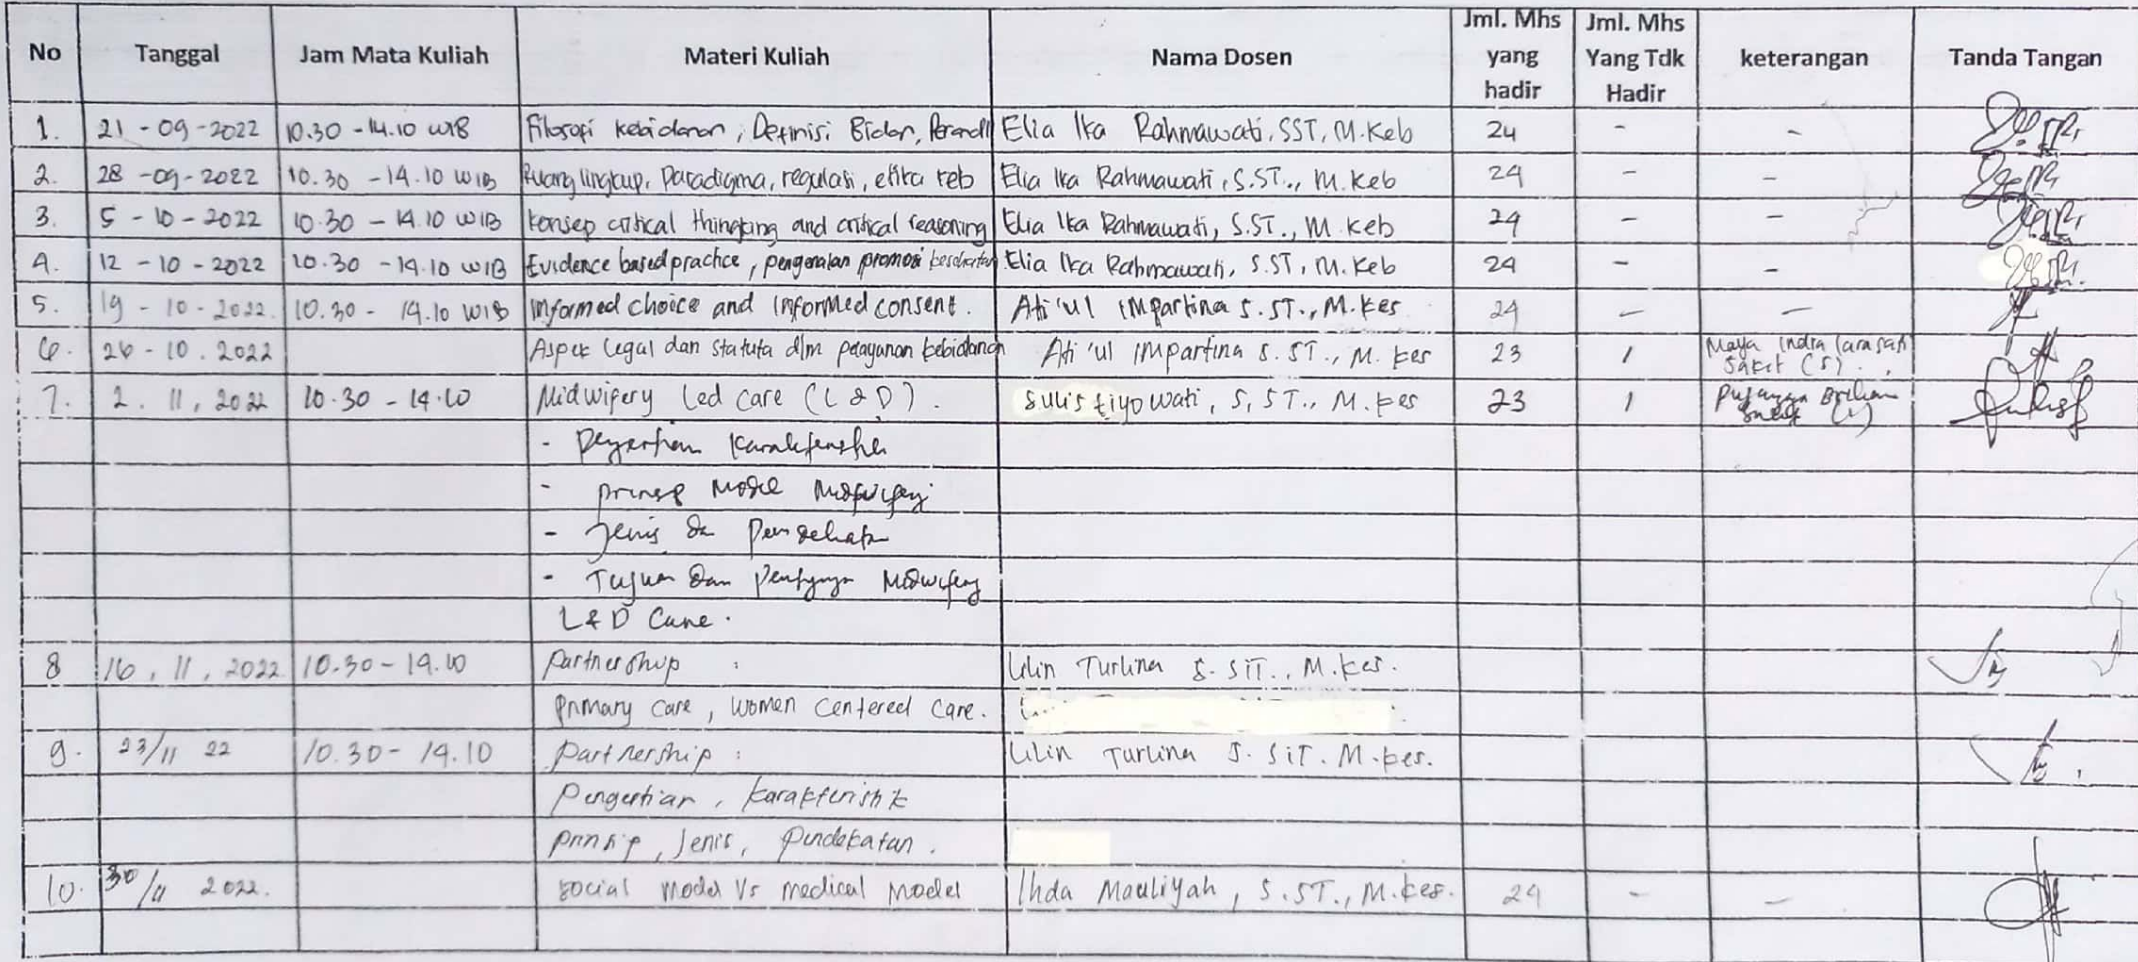 No Tanggal Jam Mata Kuliah Materi Kuliah Nama Dosen Jml. Mhs yang hadir Jml. Mhs Yang Tdk Hadir keterangan Tanda Tangan
1. 21 - 09 - 2022 10.30 - 14.10 WIB Filosofi kebidanan, Definisi Bidan, Elia Ika Rahmawati, SST, M.Keb 24 - -
2. 28 - 09 - 2022 10.30 - 14.10 WIB Ruang lingkup, Paradigma, regulasi, etika keb Elia Ika Rahmawati, S.ST., M.Keb 24 - -
3. 5 - 10 - 2022 10.30 - 14.10 WIB Konsep critical thingking and critical reasoning Elia Ika Rahmawati, S.ST., M.Keb 24 - -
4. 12 - 10 - 2022 10.30 - 14.10 WIB Evidence based practice, pengenalan promosi kesehatan Elia Ika Rahmawati, S.ST, M.Keb 24 - -
5. 19 - 10 - 2022 10.30 - 14.10 WIB Informed choice and informed consent. Ati'ul Impartina S.ST., M.Kes 24 - -
6. 26 - 10 . 2022 Aspek Legal dan statuta dlm pelayanan kebidanan Ati'ul Impartina S.ST., M.Kes 23 1 Maya Indra Larasati
Sakit (S).
7. 2 . 11 . 2022 10.30 - 14.10 Midwipery Led care (L & D). Sulistiyowati, S,ST., M.Kes 23 1
- Pengertian Karakteristik
- prinsip Model Midwifery
- Jenis dan Pendekatan
- Tujuan dan Midwifery
L & D Care.
8 16 . 11 . 2022 10.30 - 14.10 Partnership : Lilin Turlina S.SiT., M.Kes.
Primary care, women centered care.
9. 23/11 22 10.30 - 14.10 Partnership : Lilin Turlina S.SiT. M.Kes.
Pengertian, karakteristik
Prinsip, Jenis, Pendekatan.
10. 30/11 2022. Social Model Vs Medical Model Ihda Mauliyah, S.ST., M.Kes. 24 - -